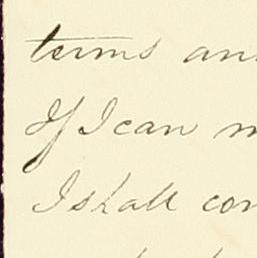 terms an
If I can m
I shall con